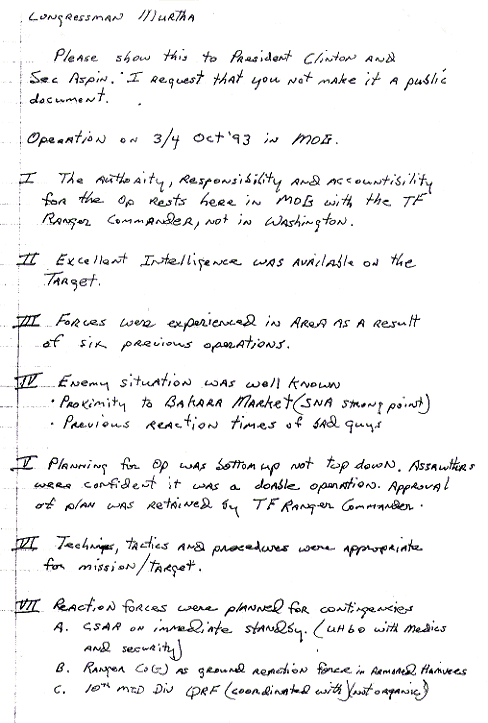 Congressman Murtha
Please show this to President Clinton and
Sec Aspin. I request that you not make it a public
document.
Operation on 3/4 Oct '93 in MOG.
I The authority, responsibility and accountibility
for the Op rests here in MOG with the TF
Ranger Commander, not in Washington.
II Excellent Intelligence was available on the
Target.
III Forces were experienced in Area as a result
of six previous operations.
IV Enemy situation was well known
• Proximity to Bakara Market (SNA strong point)
• Previous reaction times of bad guys
V Planning for Op was bottom up not top down. Assaulters
were confident it was a doable operation. Approval
of plan was retained by TF Ranger Commander.
VI Techniqs, tactics and procedures were appropriate
for mission/target.
VII Reaction forces were planned for contingencies
A. CSAR on immediate standby. (UH60 with medics
and security)
B. Ranger Co(-) as ground reaction force in Armored Humvees
C. 10th MTD Div QRF (coordinated with)(not organic)